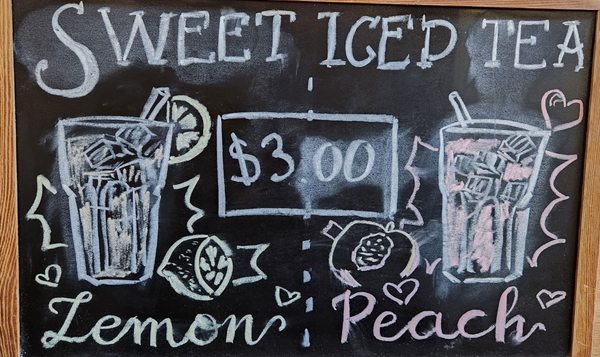 SWEET ICED TEA
$3.00
Lemon Peach